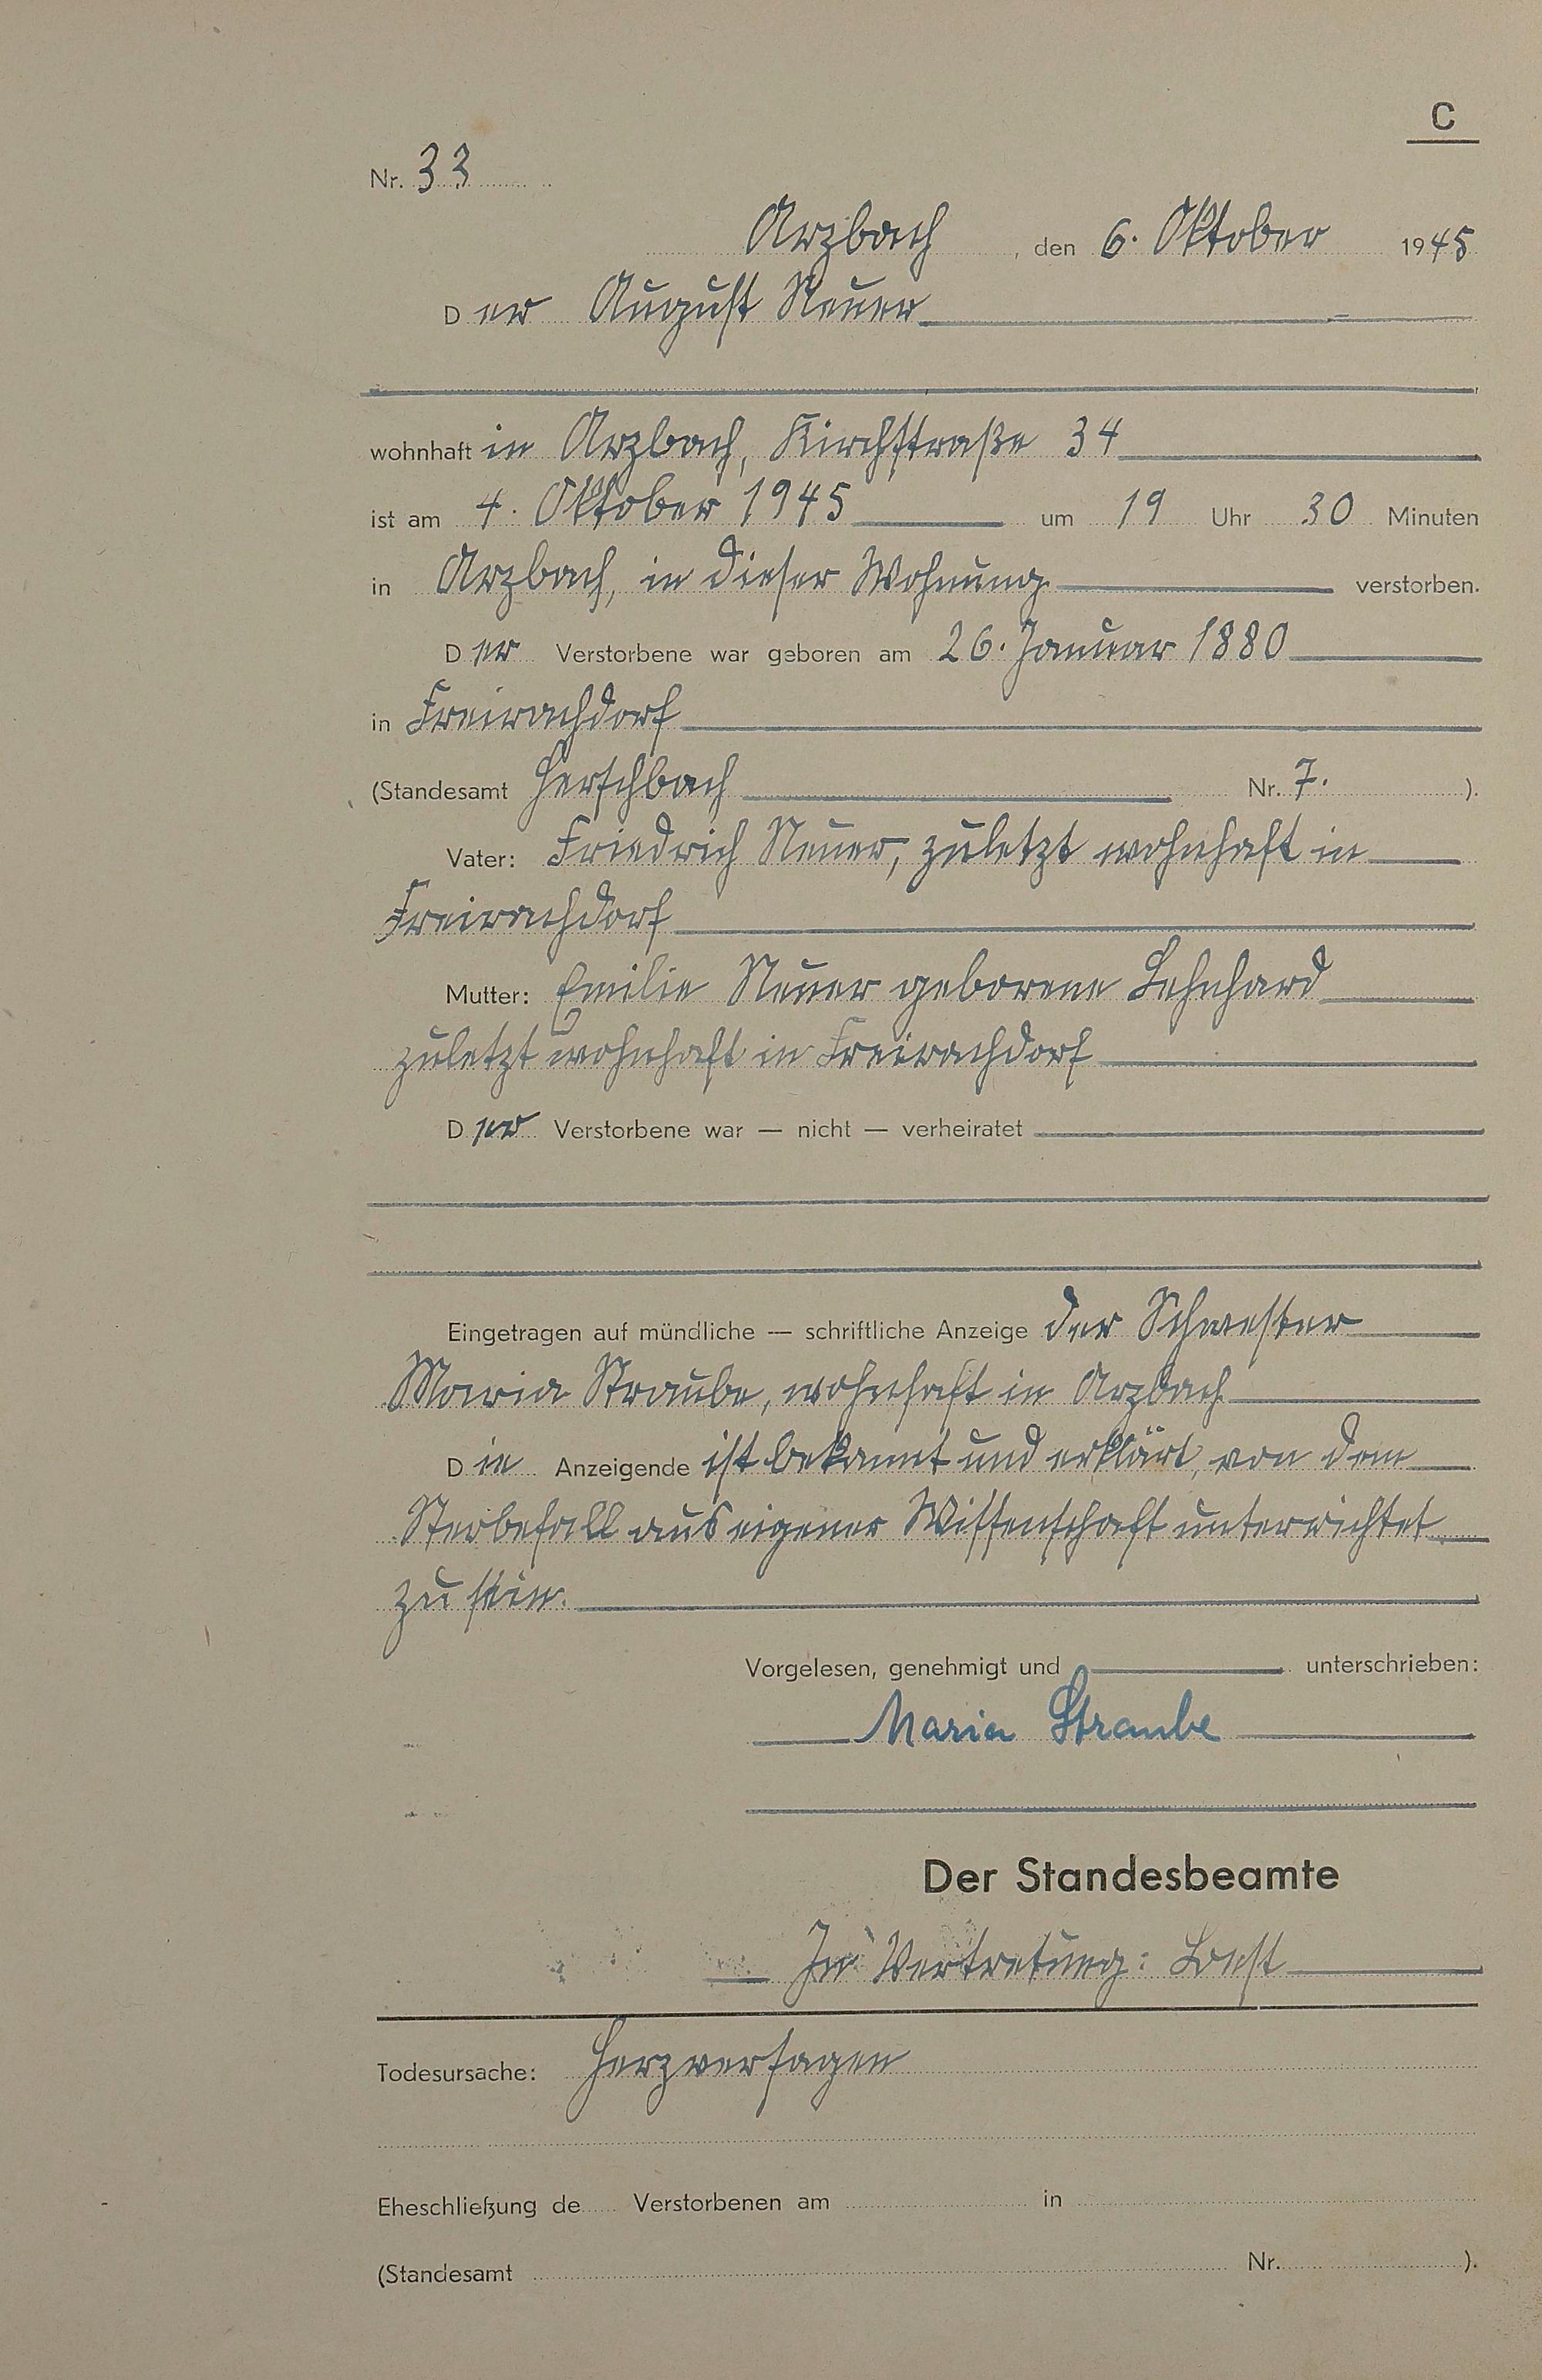 C
Nr. 33
Arzbach, den 6. Oktober 1945
Der August Neuer
wohnhaft in Arzbach, Kirchstraße 34
ist am 4. Oktober 1945 um 19 Uhr 30 Minuten
in Arzbach, in dieser Wohnung verstorben.
Der Verstorbene war geboren am 26. Januar 1880
in Freirachdorf
(Standesamt Herschbach Nr. 7. ).
Vater: Friedrich Neuer, zuletzt wohnhaft in
Freirachdorf
Mutter: Emilie Neuer geborene Lehnhard
zuletzt wohnhaft in Freirachdorf
Der Verstorbene war — nicht — verheiratet
Eingetragen auf mündliche — schriftliche Anzeige der Schwester
Maria Straube, wohnhaft in Arzbach
Die Anzeigende ist bekannt und erklärt, von dem
Sterbefall aus eigener Wissenschaft unterrichtet
zu sein.
Vorgelesen, genehmigt und unterschrieben:
Maria Straube
Der Standesbeamte
In Vertretung:
Todesursache: Herzversagen
Eheschließung de Verstorbenen am in
(Standesamt Nr. ).